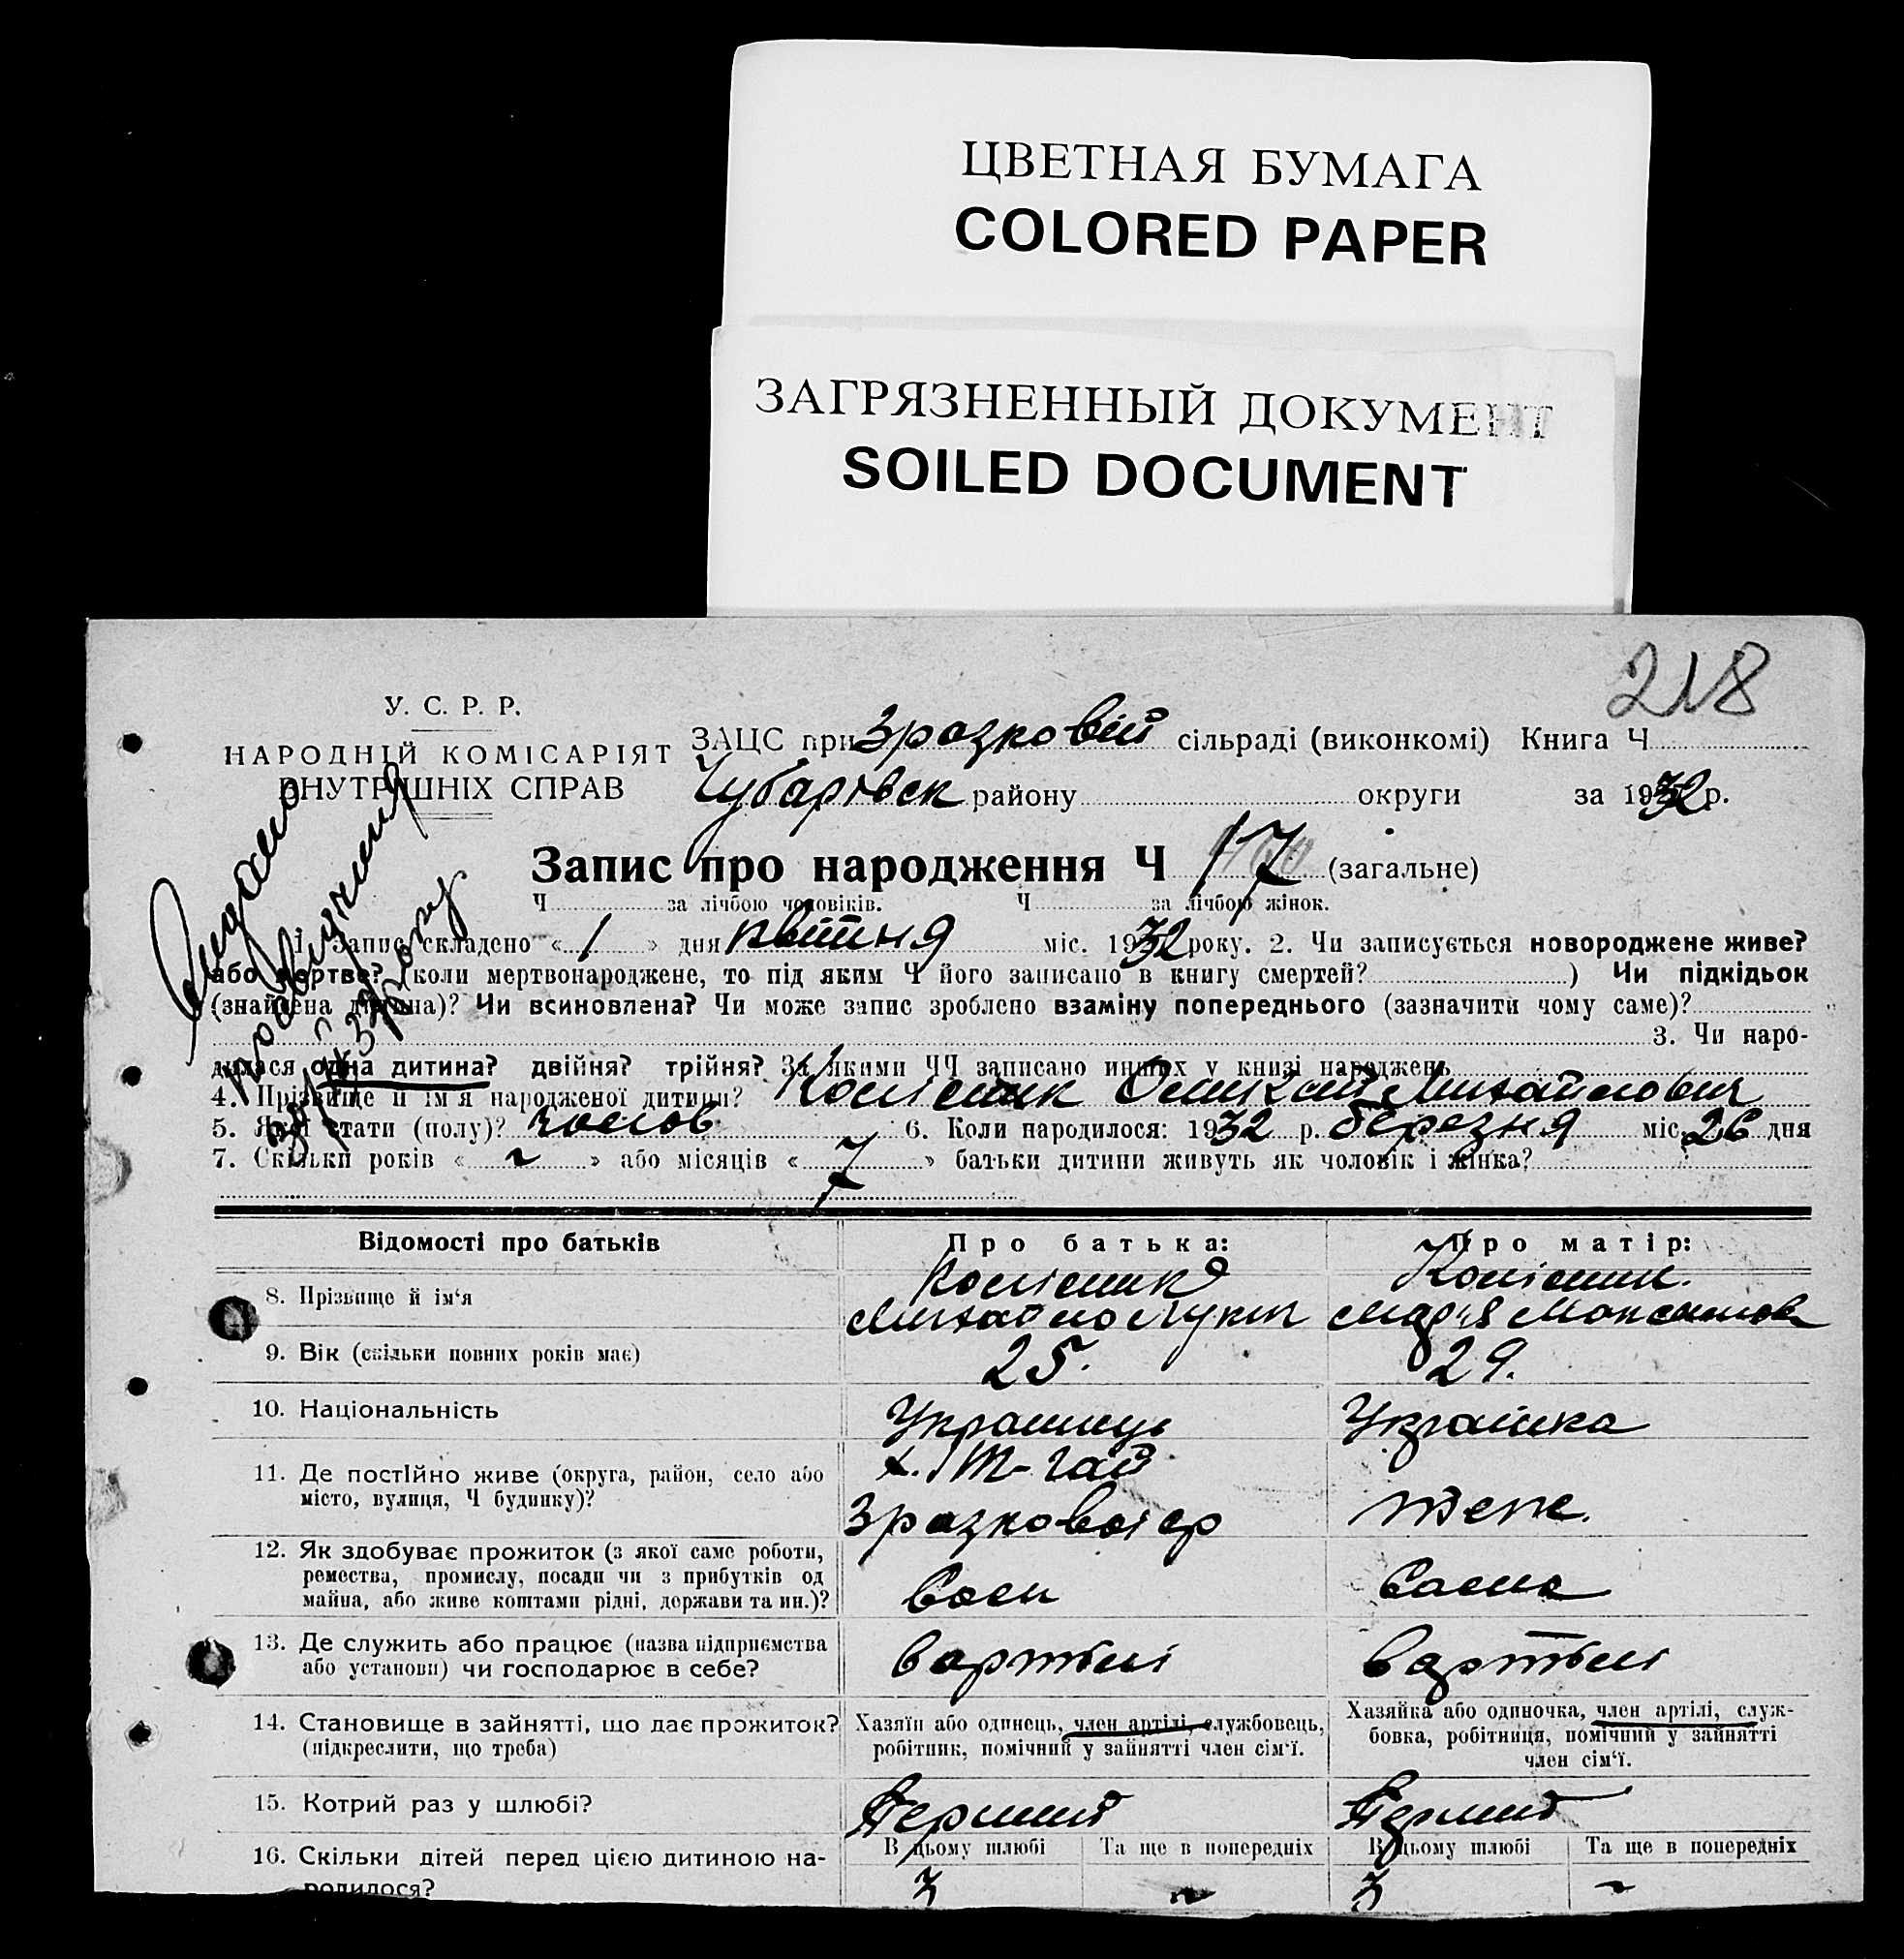 ЦВЕТНАЯ БУМАГА
COLORED PAPER
ЗАГРЯЗНЕННЫЙ ДОКУМЕНТ
SOILED DOCUMENT
218
У. С. Р. Р.
НАРОДНІЙ КОМІСАРІЯТ
ВНУТРІШНІХ СПРАВ
ЗАЦС при Зразковій сільраді (виконкомі) Книга Ч
Чубарівск району округи за 1932 р.
Запис про народження Ч 17 (загальне)
Ч за лічбою чоловіків. Ч за лічбою жінок.
1. Запис складено « 1 » дня квітня міс. 1932 року. 2. Чи записується новороджене живе?
або мертве? (коли мертвонароджене, то під яким Ч його записано в книгу смертей? ) Чи підкідьок
(знайдена дитина)? Чи всиновлена? Чи може запис зроблено взаміну попереднього (зазначити чому саме)?
3. Чи наро-
дилася одна дитина? двійня? трійня? За якими ЧЧ записано инших у книзі народжень
4. Прізвище й ім'я народженої дитини? Колісник Михайлович
5. Якої стати (полу)? чолов 6. Коли народилося: 1932 р. березня міс. 26 дня
7. Скільки років « ~ » або місяців « 7 » батьки дитини живуть як чоловік і жінка?
Видано
Відомості про батьків
Про батька:
Про матір:
8. Прізвище й ім'я
Колісник
Михайло Лукич
Колісник
Марія Максимов
9. Вік (скільки повних років має)
25.
29.
10. Національність
Українець
Українка
11. Де постійно живе (округа, район, село або
місто, вулиця, Ч будинку)?
х. Т-Гай
Зразкової ср
теж.
12. Як здобуває прожиток (з якої саме роботи,
ремества, промислу, посади чи з прибутків од
майна, або живе коштами рідні, держави та ин.)?
13. Де служить або працює (назва підприємства
або установи) чи господарює в себе?
в артілі
в артілі
14. Становище в зайнятті, що дає прожиток?
(підкреслити, що треба)
Хазяїн або одинець, член артілі, службовець,
робітник, помічний у зайнятті член сім'ї.
Хазяйка або одиночка, член артілі, служ-
бовка, робітниця, помічний у зайнятті
член сім'ї.
15. Котрий раз у шлюбі?
Перший
Перший
16. Скільки дітей перед цією дитиною на-
родилося?
В цьому шлюбі
Та ще в попередніх
В цьому шлюбі
Та ще в попередніх
3
~
3
~